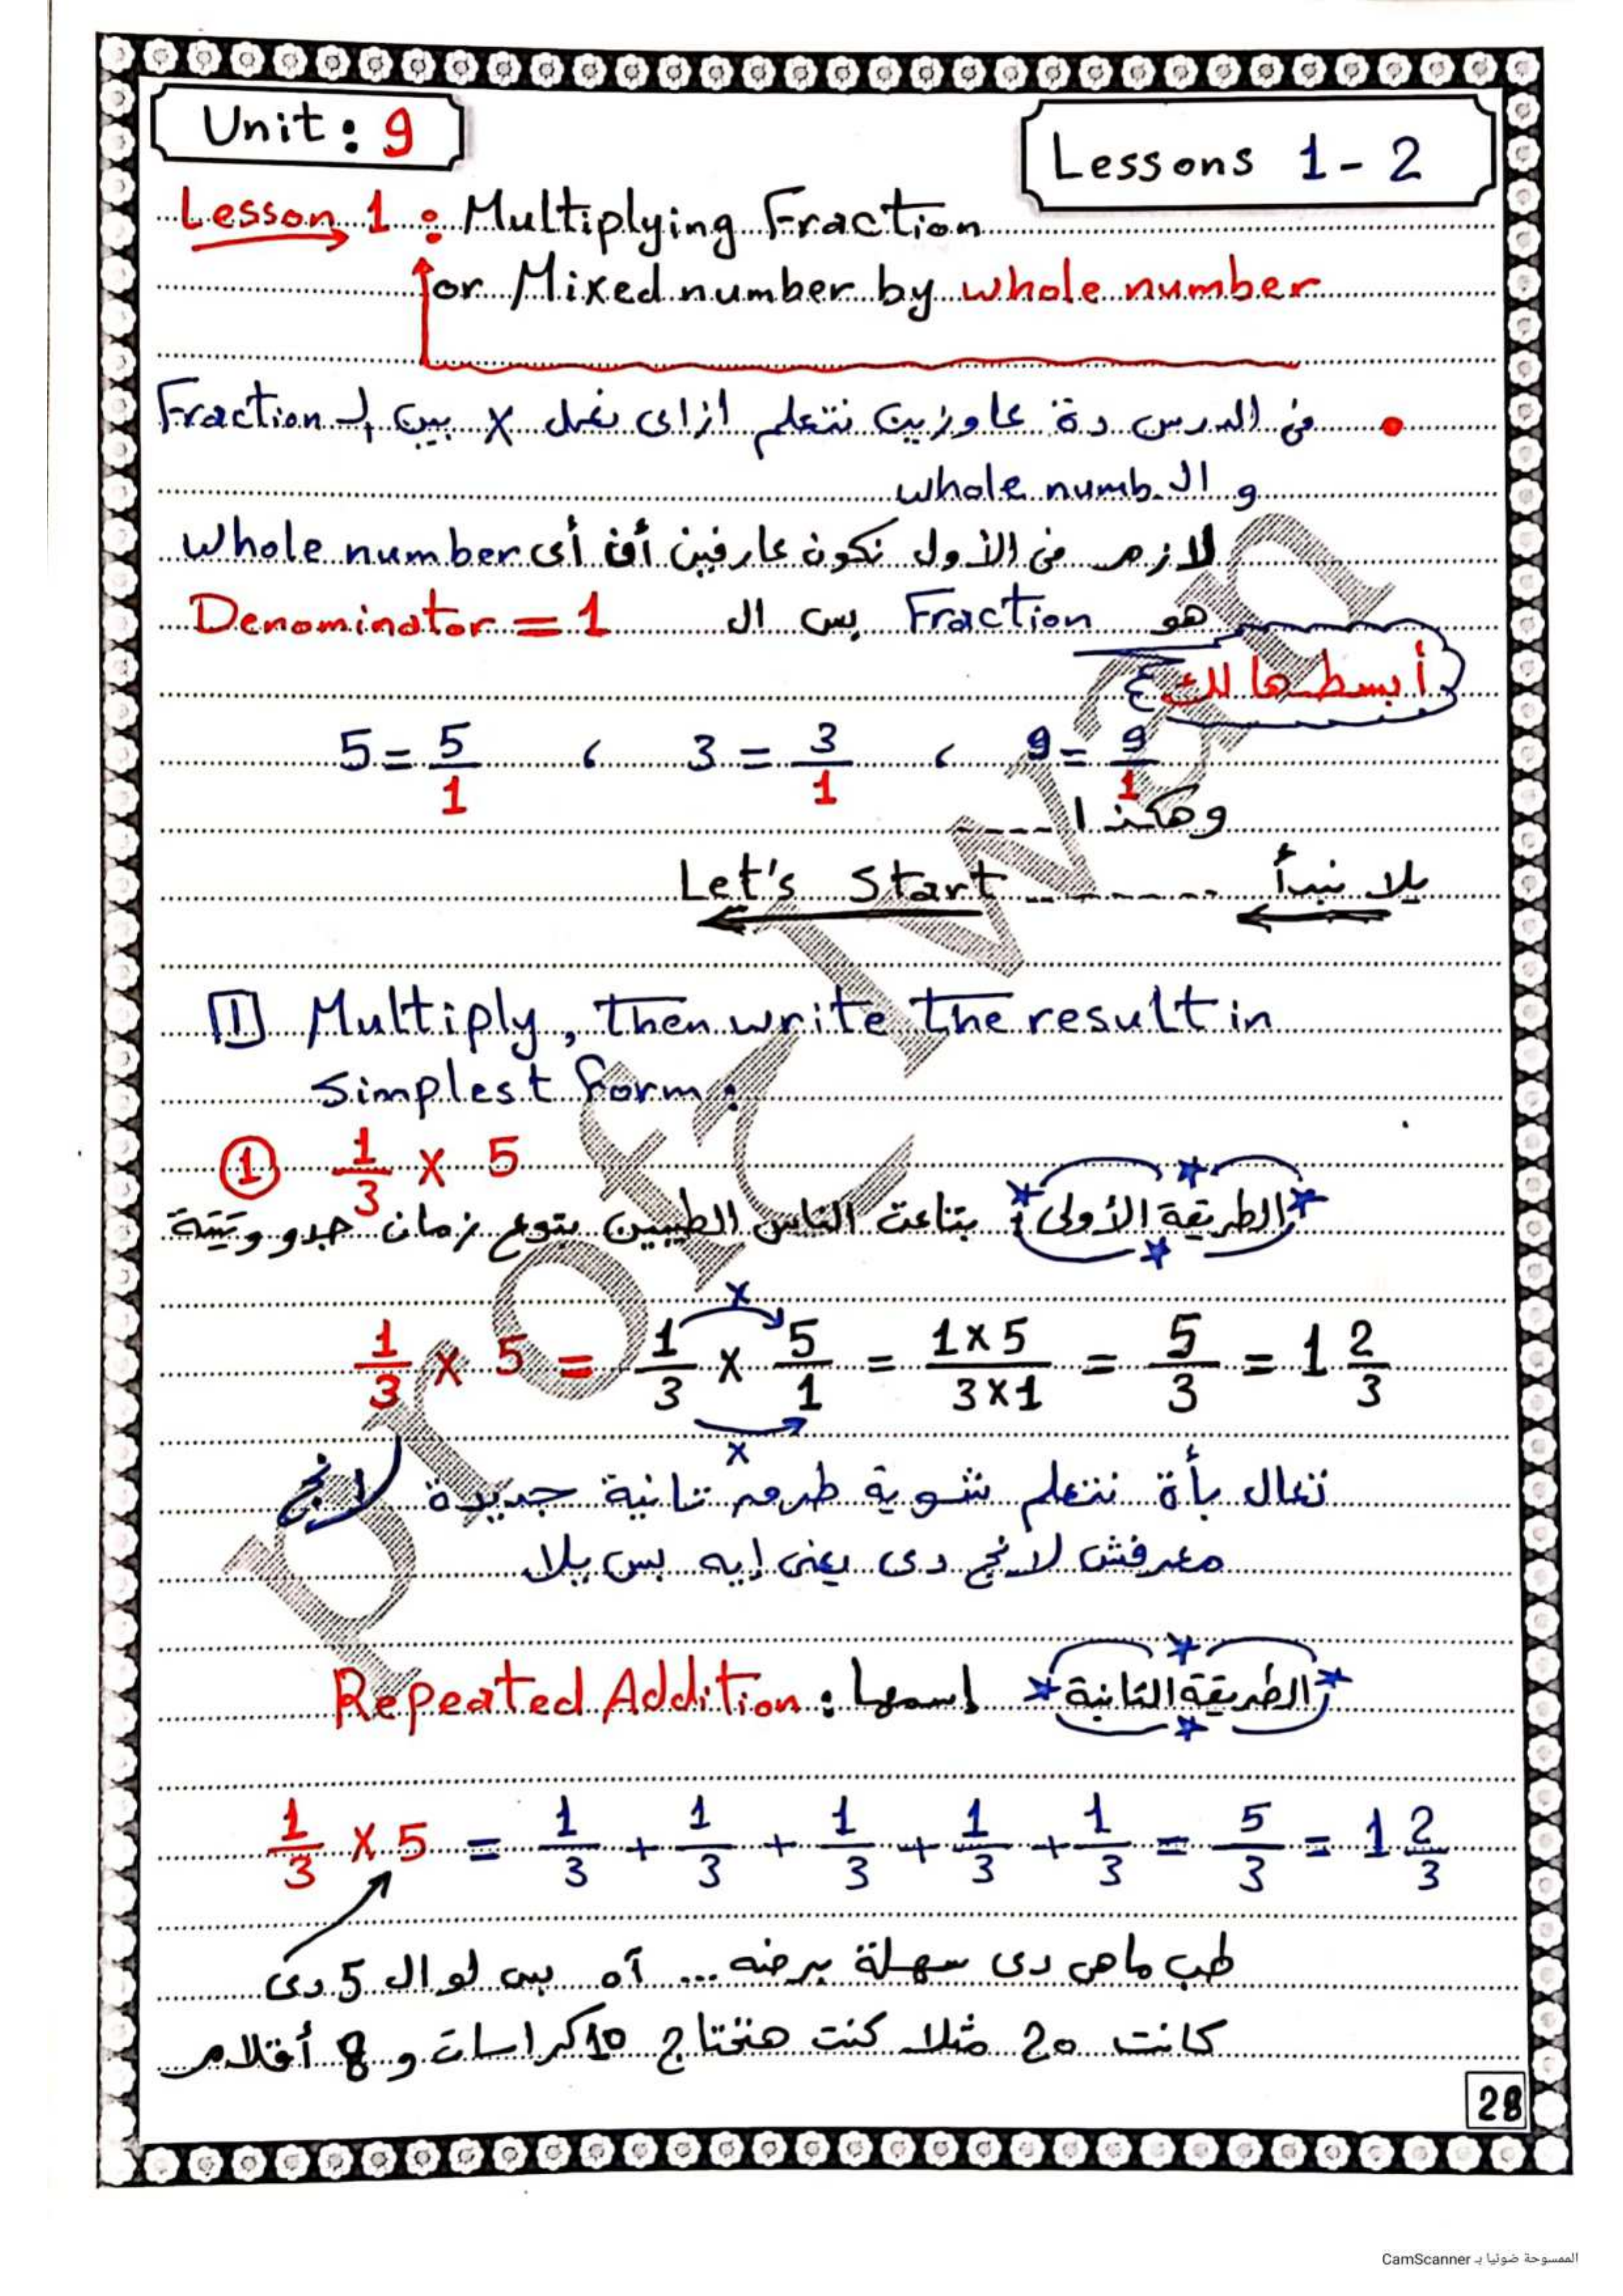 Unit: 9
Lessons 1 - 2
Lesson 1 : Multiplying Fraction
or Mixed number by whole number
• فى الدرس دة عاوزين نتعلم ازاى نعمل × بين الـ Fraction
و الـ whole numb.
لازم فى الأول نكون عارفين أن أى whole number
هو Fraction بس ال Denominator = 1
أبسطهالك
5 = 5/1 ، 3 = 3/1 ، 9 = 9/1
وهكذا ----
يلا نبدأ ------- Let's Start
1 Multiply, Then write The result in
simplest form:
① 1/3 × 5
الطريقة الأولى : بتاعت الناس الطيبين بتوع زمان جدو وتيتة
1/3 × 5 = 1/3 × 5/1 = 1×5/3×1 = 5/3 = 1 2/3
تعال بأة نتعلم شوية طرق تانية جديدة لانج
معرفش لانج دى يعنى إيه بس يلا
الطريقة الثانية اسمها : Repeated Addition
1/3 × 5 = 1/3 + 1/3 + 1/3 + 1/3 + 1/3 = 5/3 = 1 2/3
طب ماهى دى سهلة برضه ... آه بس لو ال 5 دى
كانت 20 مثلا كنت هتحتاج 10 كراسات و 8 أقلام
28
الممسوحة ضوئيا بـ CamScanner